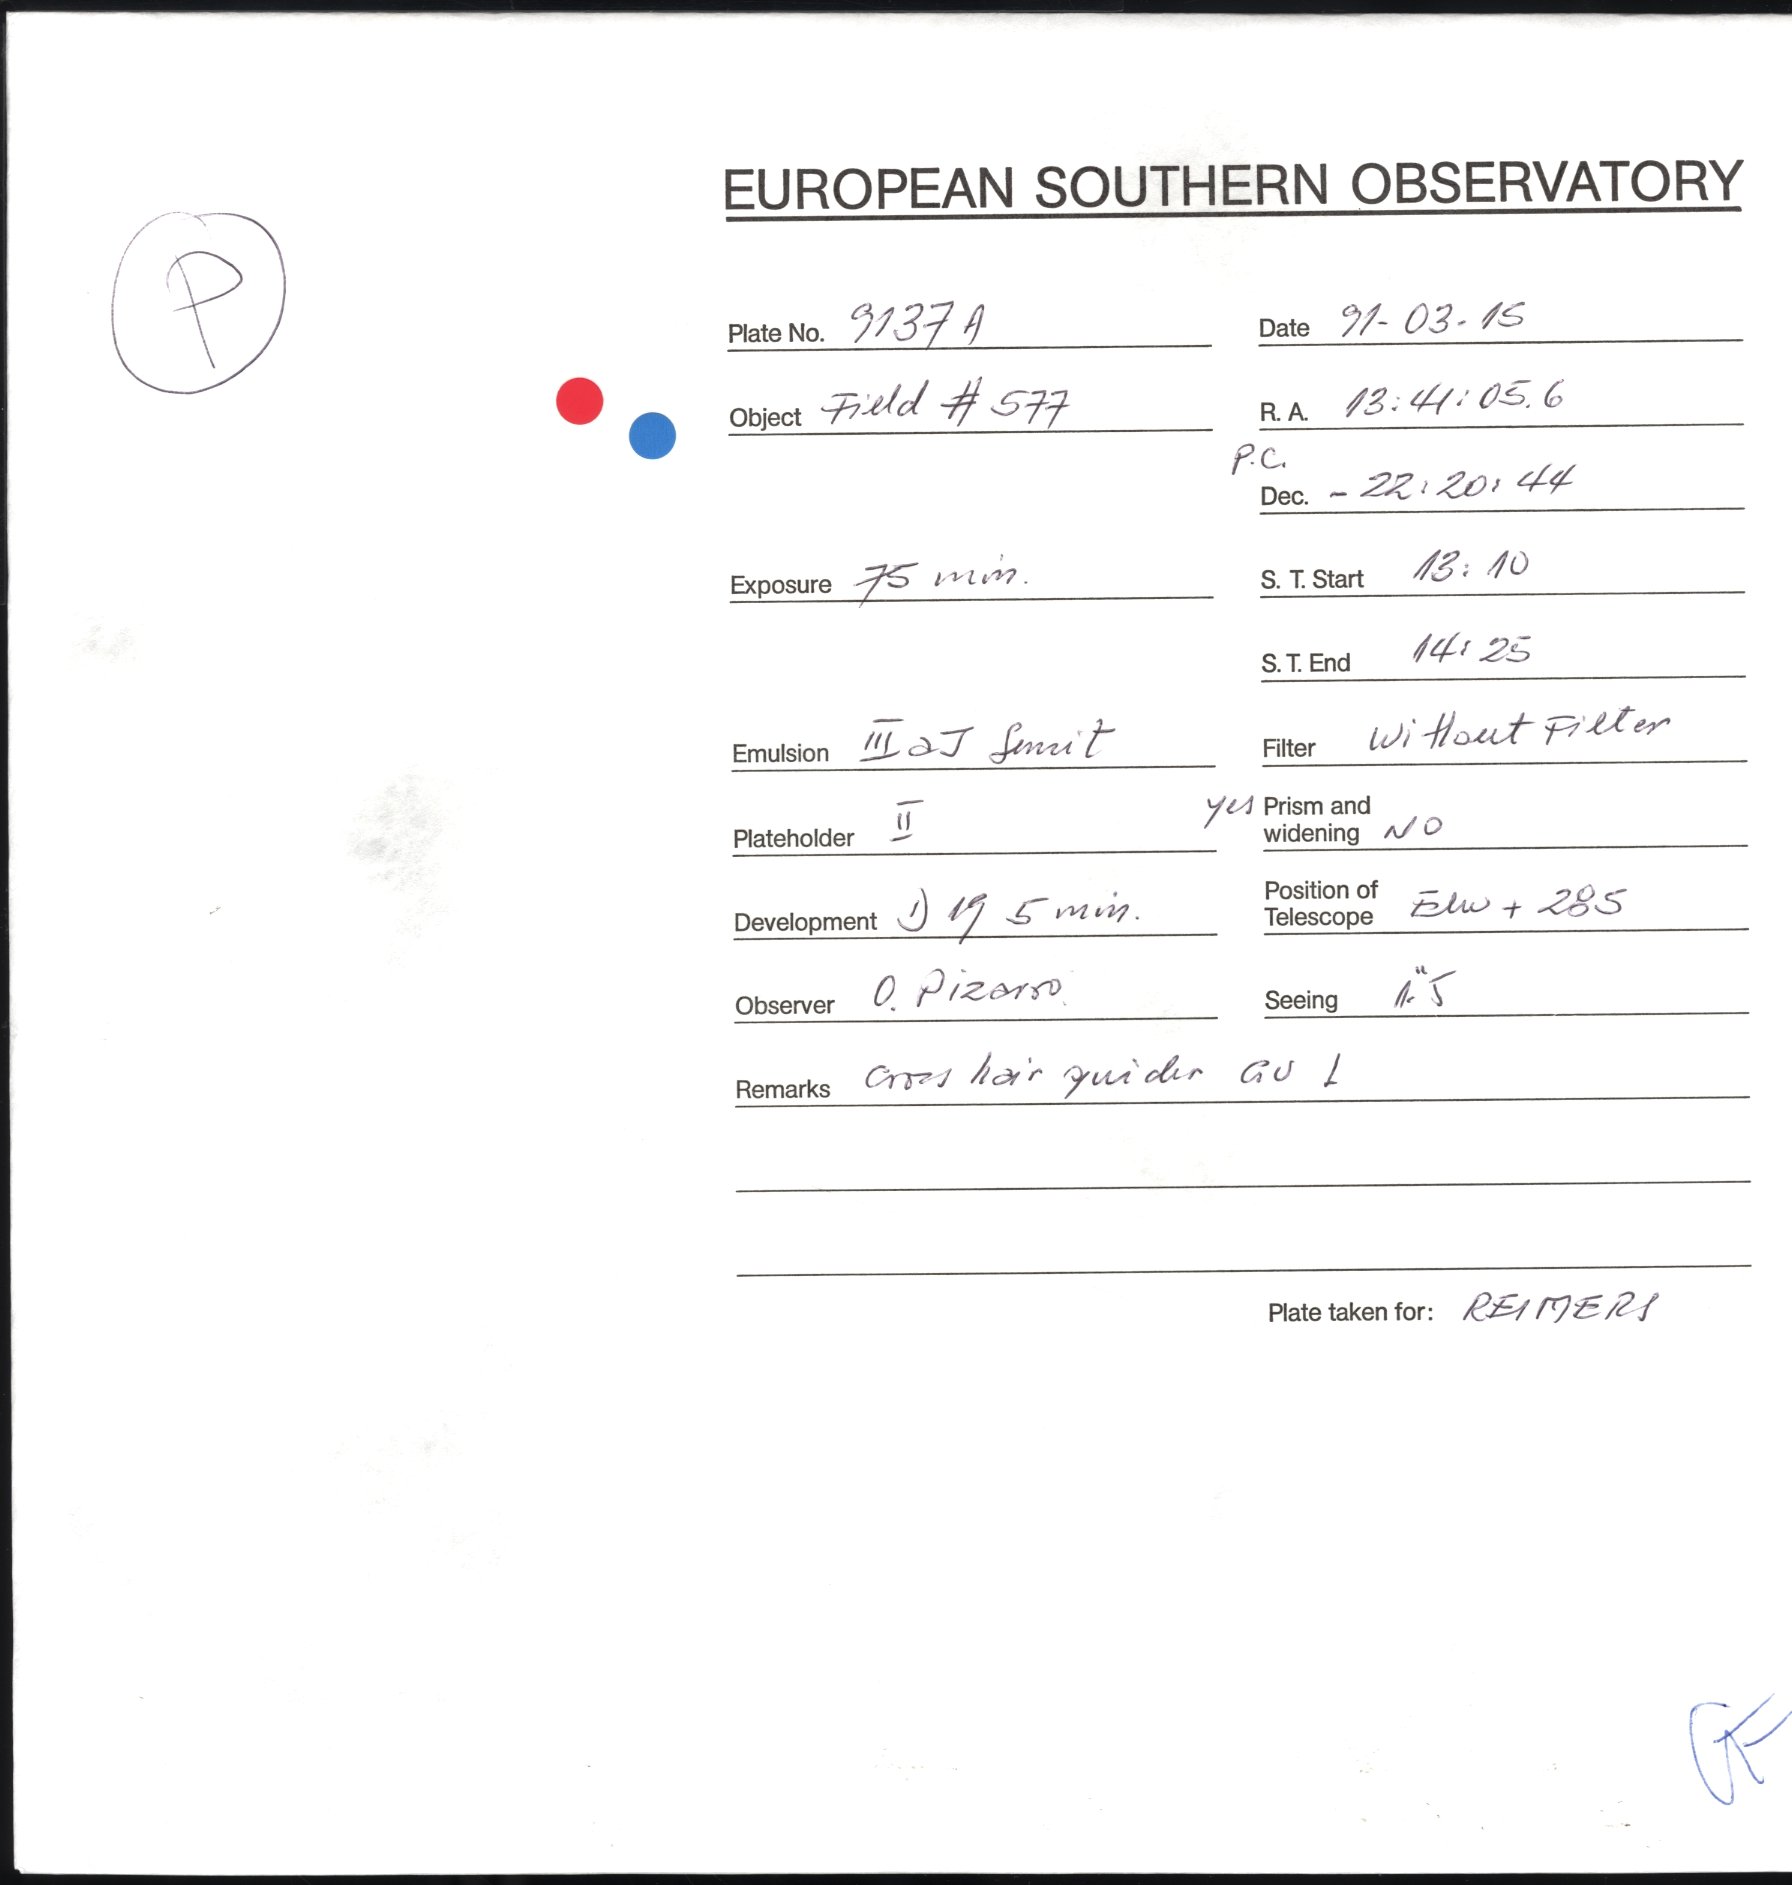 EUROPEAN SOUTHERN OBSERVATORY
P
Plate No. 9137 A
Date 91-03-15
Object Field # 577
R. A. 13:41:05.6
P.C.
Dec. - 22:20:44
Exposure 75 min.
S. T. Start 13:10
S. T. End 14:25
Emulsion III aJ sensit
Filter Without Filter
Plateholder II
yes Prism and
widening NO
Development 1) 19 5 min.
Position of
Telescope + 285
Observer O. Pizarro
Seeing 1."5
Remarks Cross hair guider GU 1
Plate taken for: REIMERS